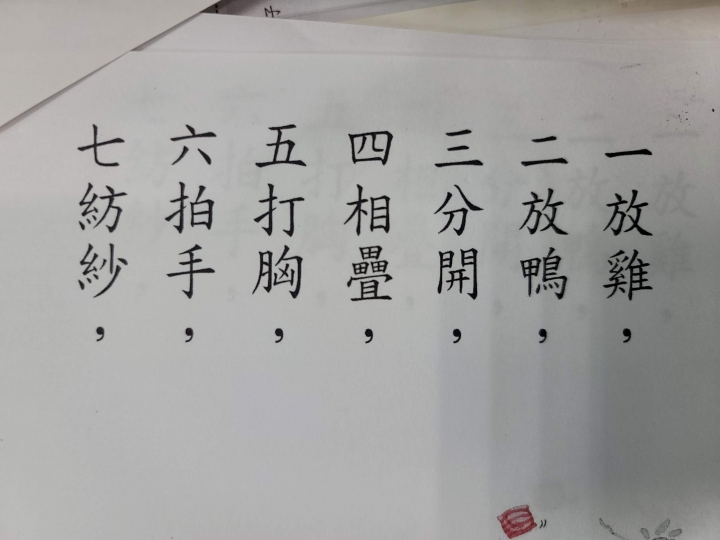 一放雞，
二放鴨，
三分開，
四相疊，
五打胸，
六拍手，
七紡紗，